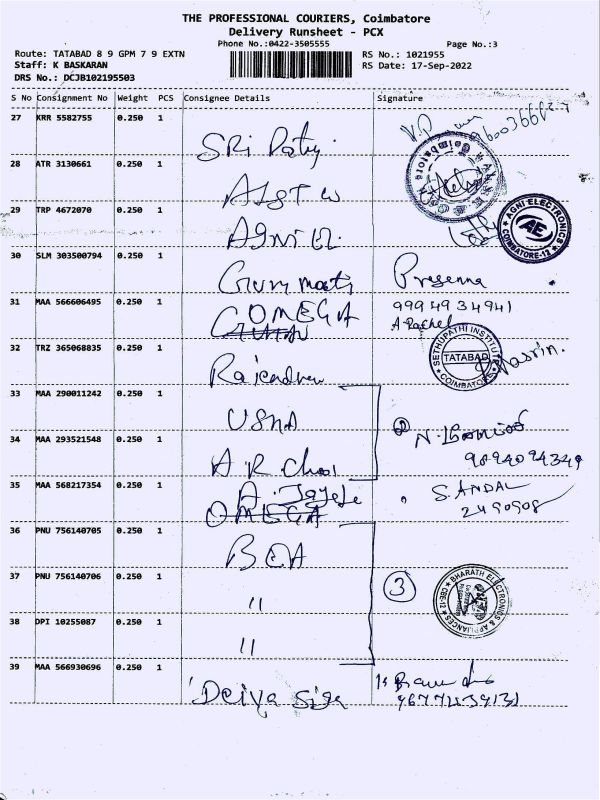 THE PROFESSIONAL COURIERS, Coimbatore
Delivery Runsheet - PCX
Phone No.:0422-3505555
Page No.:3
Route: TATABAD 8 9 GPM 7 9 EXTN
RS No.: 1021955
Staff: K BASKARAN
RS Date: 17-Sep-2022
DRS No.: DCJB102195503
S No Consignment No Weight PCS Consignee Details Signature
27 KRR 5582755 0.250 1
SRi
28 ATR 3130661 0.250 1
29 TRP 4672070 0.250 1
AGNI ELECTRONICS
AE
COIMBATORE-12
30 SLM 303500794 0.250 1
Prasenna
31 MAA 566606495 0.250 1 OMEGA
9994934941
32 TRZ 365068835 0.250 1
SETHUPATHI INSTITUTE
TATABAD
COIMBATORE
Nasrin.
33 MAA 290011242 0.250 1
USHA
34 MAA 293521548 0.250 1
A R
9894094349
35 MAA 568217354 0.250 1
OMEGA
S. ANDAL
2490508
36 PNU 756140705 0.250 1
37 PNU 756140706 0.250 1
"
3
BHARATH ELECTRONICS & APPLIANCES
CBE-12
38 DPI 10255087 0.250 1
"
39 MAA 566930696 0.250 1